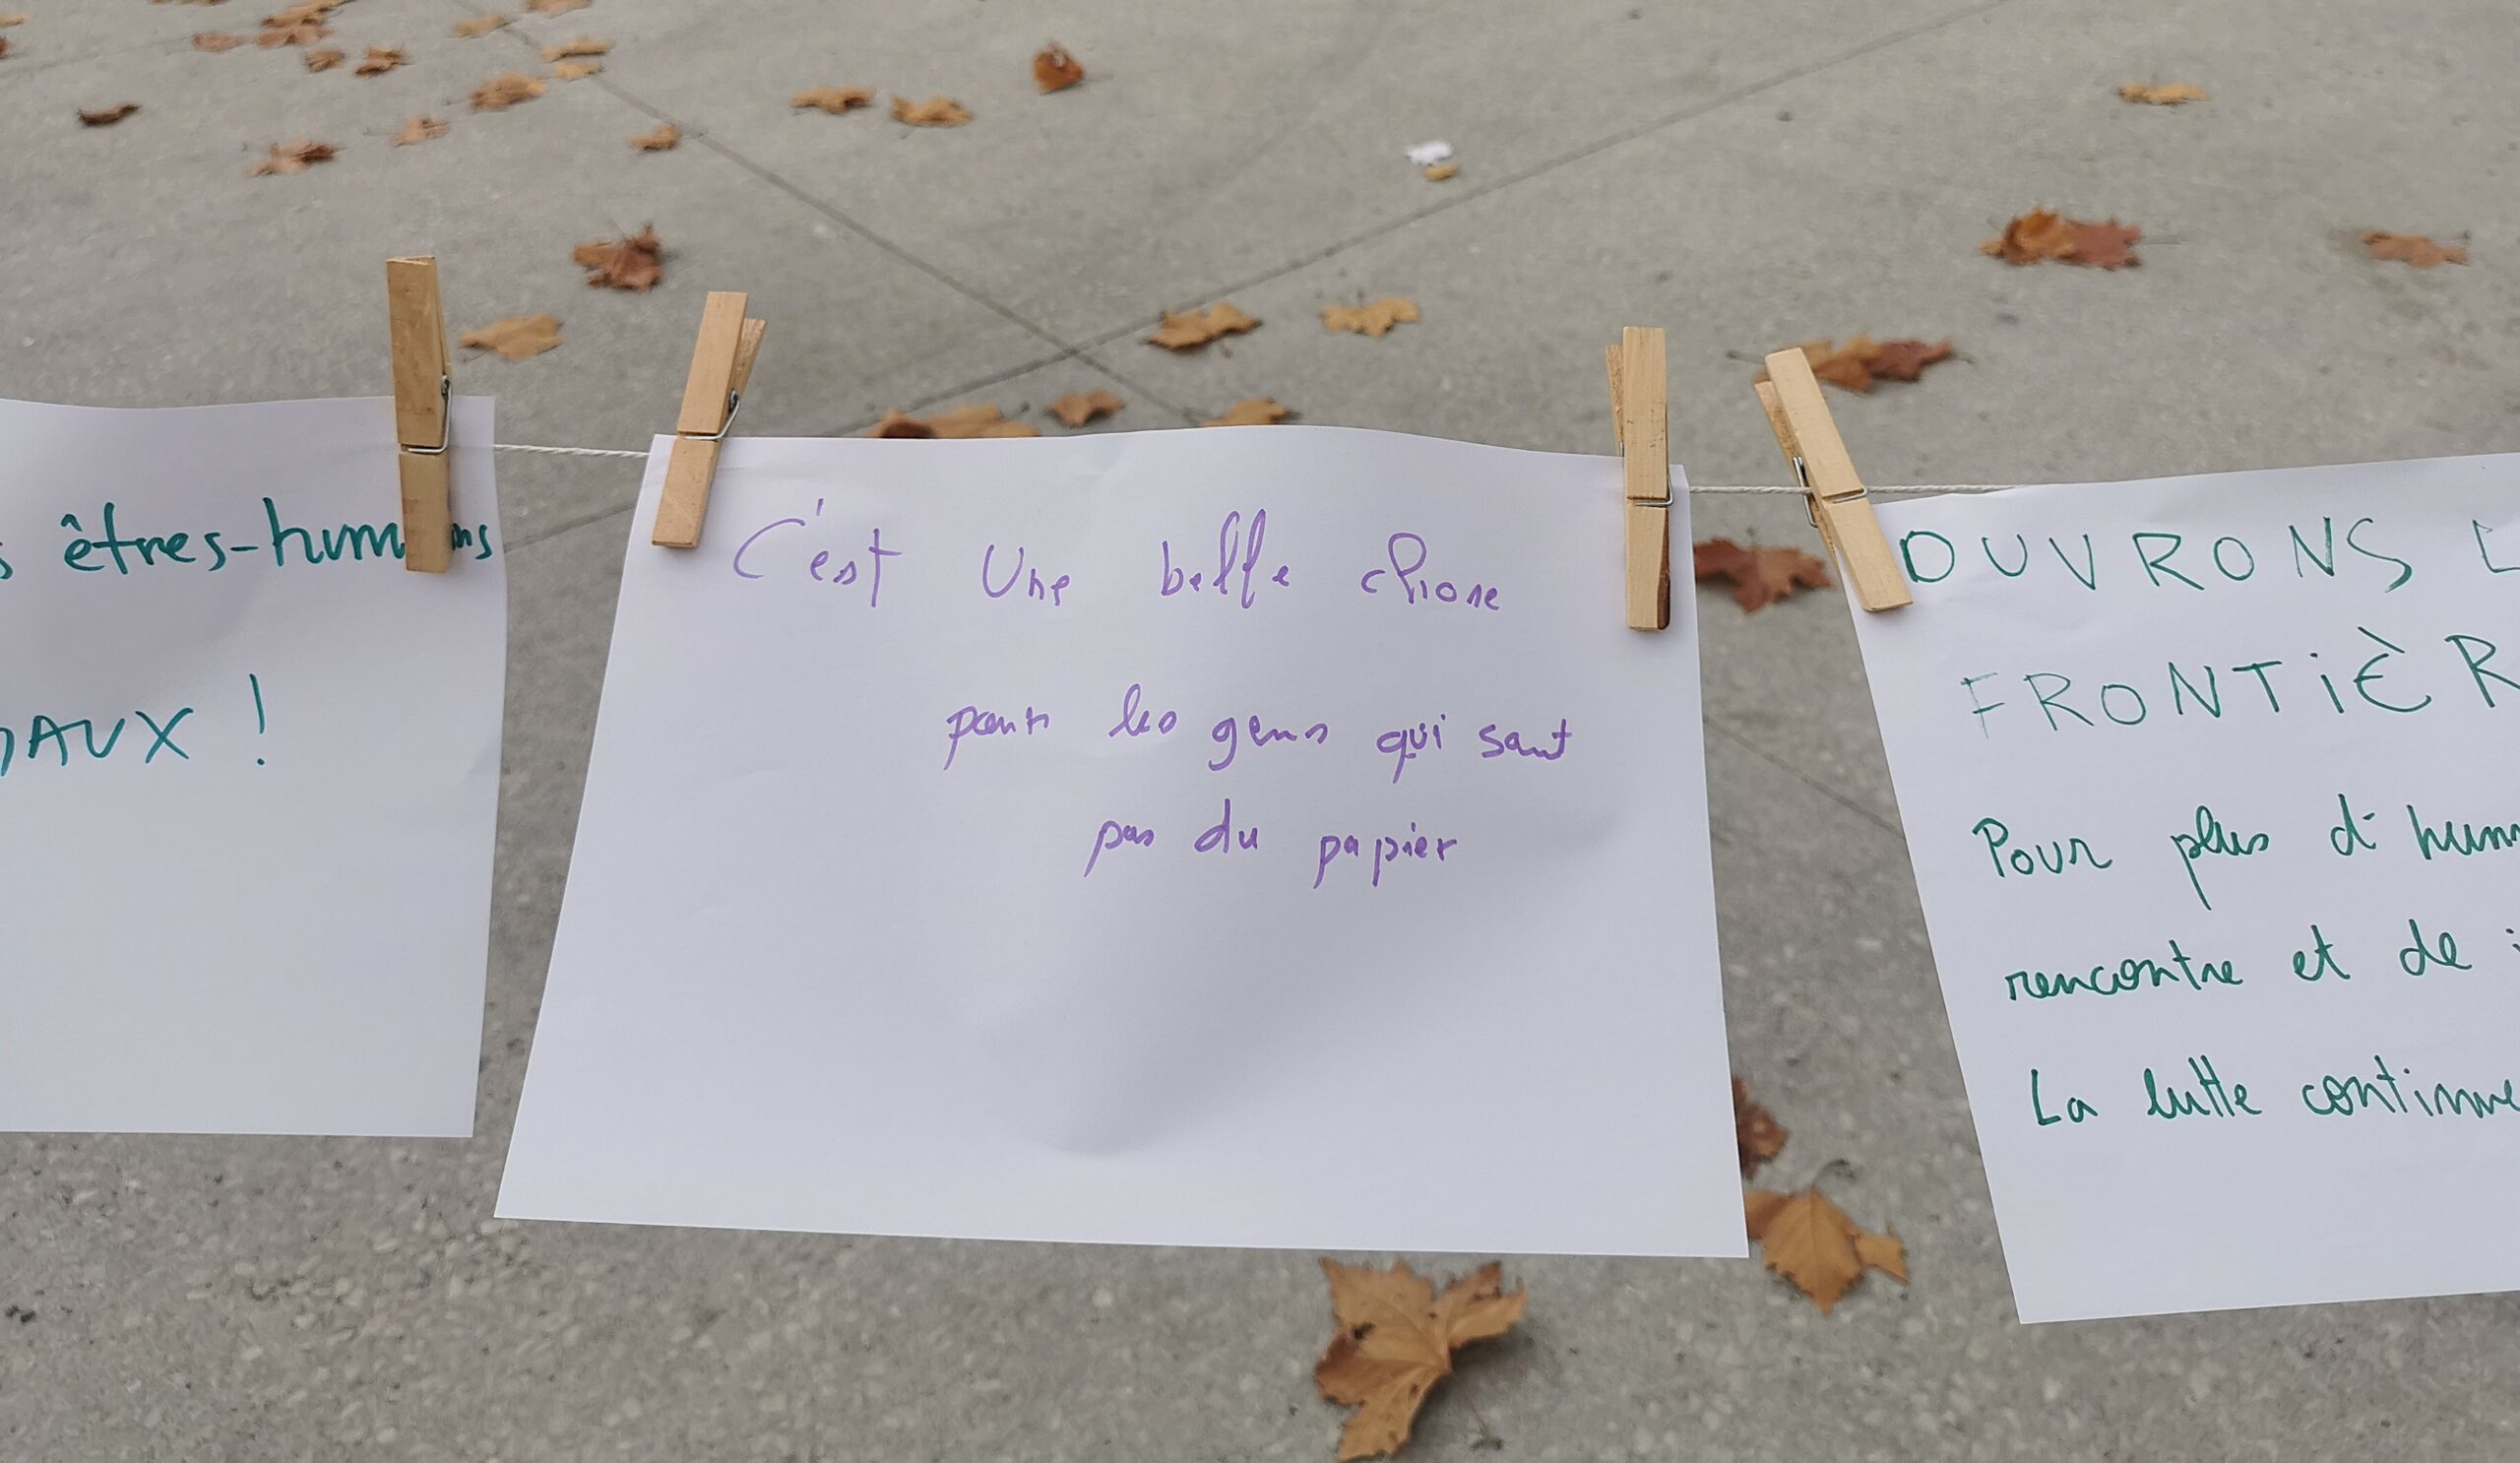 êtres-humains
AUX !
C'est Une belle chose
pour les gens qui sont
pas du papier
OUVRONS
FRONTIÈR
Pour plus d'hum
rencontre et de
La lutte continue